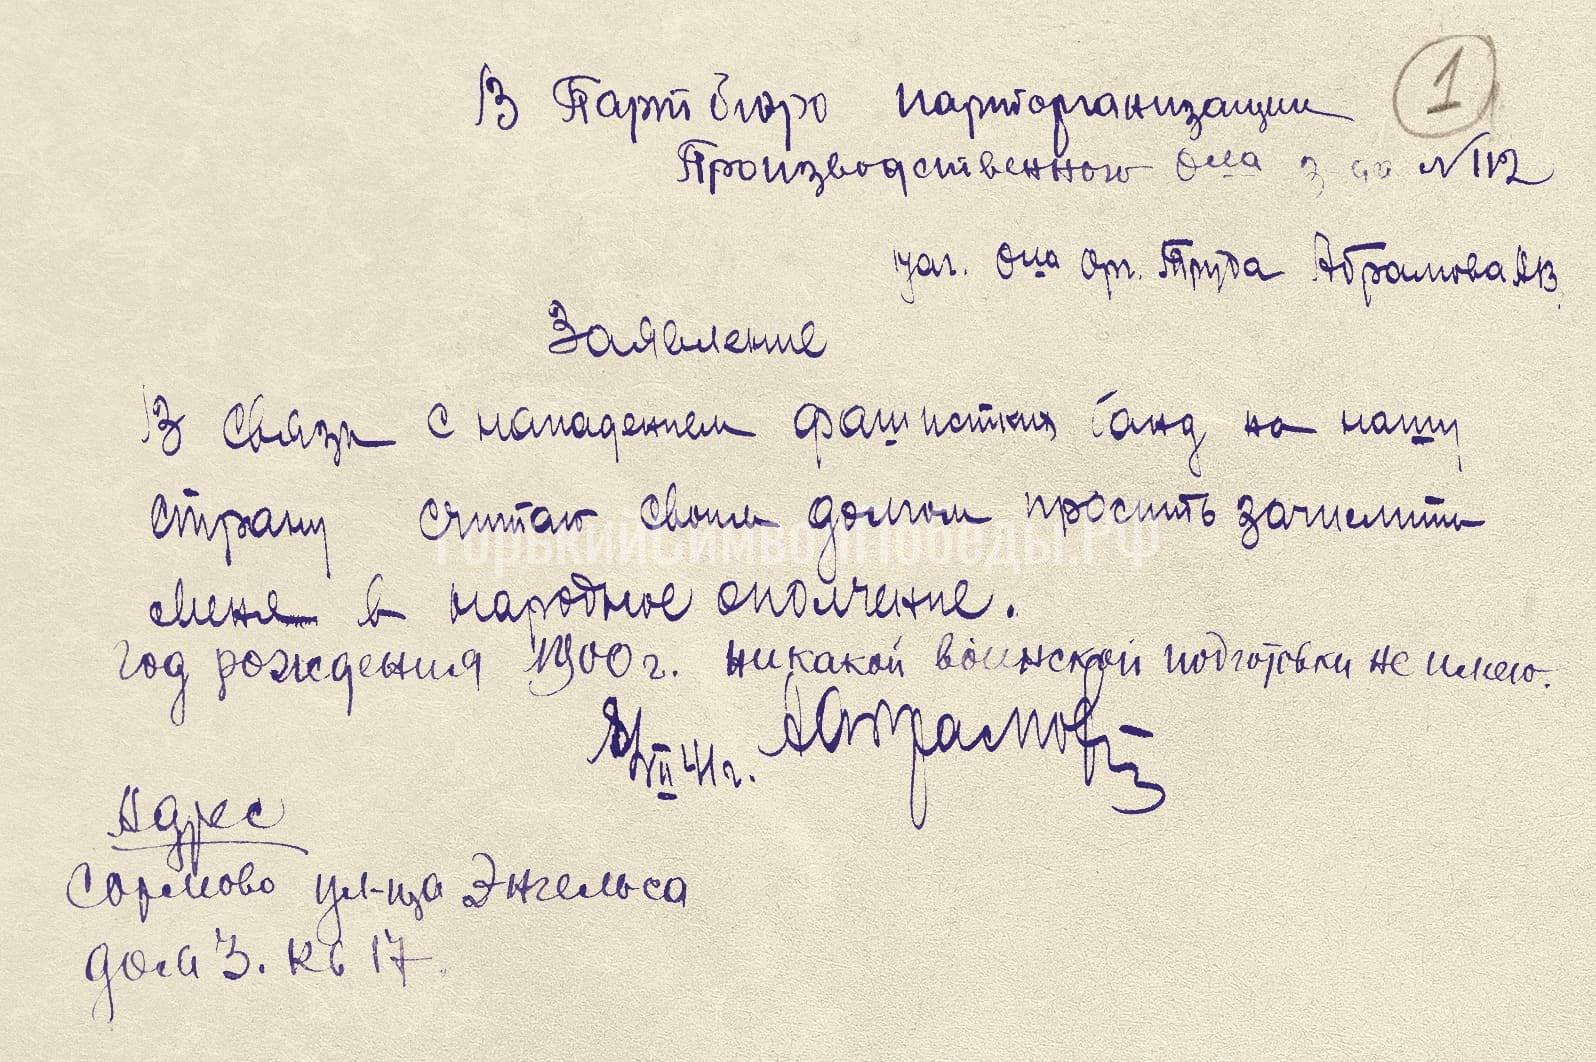 1
В Партбюро парторганизации
Производственного отла з-да №112
нач. отла орг. Труда Абрамова АВ.
Заявление
В связи с нападением фашистких банд на нашу
страну считаю своим долгом просить зачислить
меня в народное ополчение.
год рождения 1900 г. никакой воинской подготовки не имею.
VII 41 г. Абрамов
Адрес
Сормово ул-ца Энгельса
дом 3. кв 17.
ГорькийСимволПобеды.РФ